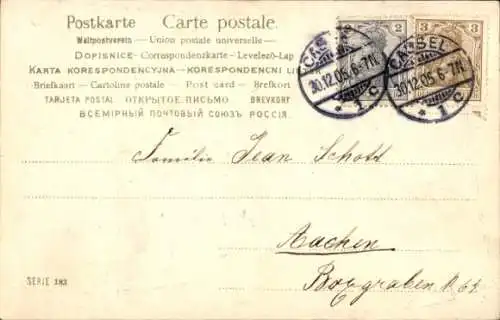 Postkarte Carte postale.
Weltpostverein — Union postale universelle —
DOPISNICE — Correspondenzkarte — Levelező-Lap
KARTA KORESPONDENCYJNA — KORESPONDENČNI LI
Briefkaart — Cartolina postale — Post card — Brefkort
TARJETA POSTAL ОТКРЫТОЕ ПИСЬМО BREVKORT
ВСЕМІРНЫЙ ПОЧТОВЫЙ СОЮЗЪ РОССІЯ.
2
3
CASSEL
30.12.05. 6-7N.
* 1 c
CASSEL
30.12.05. 6-7N.
* 1 c
Familie Jean Schott
Aachen
Boxgraben N. 69
SERIE 383